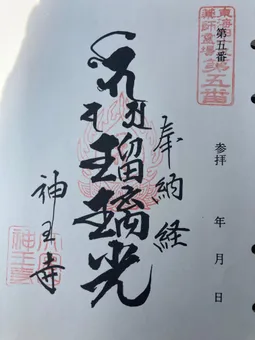 第五番
参拝 年 月 日
薬師霊場
第五番
奉納経
瑠璃光
神王寺